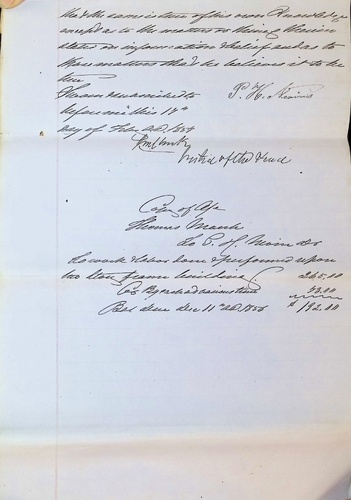 that the same is true of his own Knowledge
except as to the matters or things therein
stated on information & belief and as to
those matters that he believes it to be
true
Sworn & subscribed to
before me this 12th P. H.
day of Feby AD. 1857
Justice of the Peace
Copy of
Thomas
To P. H. Dr
To work & labor done & performed upon
two story frame building 265.00
Cr By cash at various times
Bal due Dec 11th AD. 1856 $ 192.00